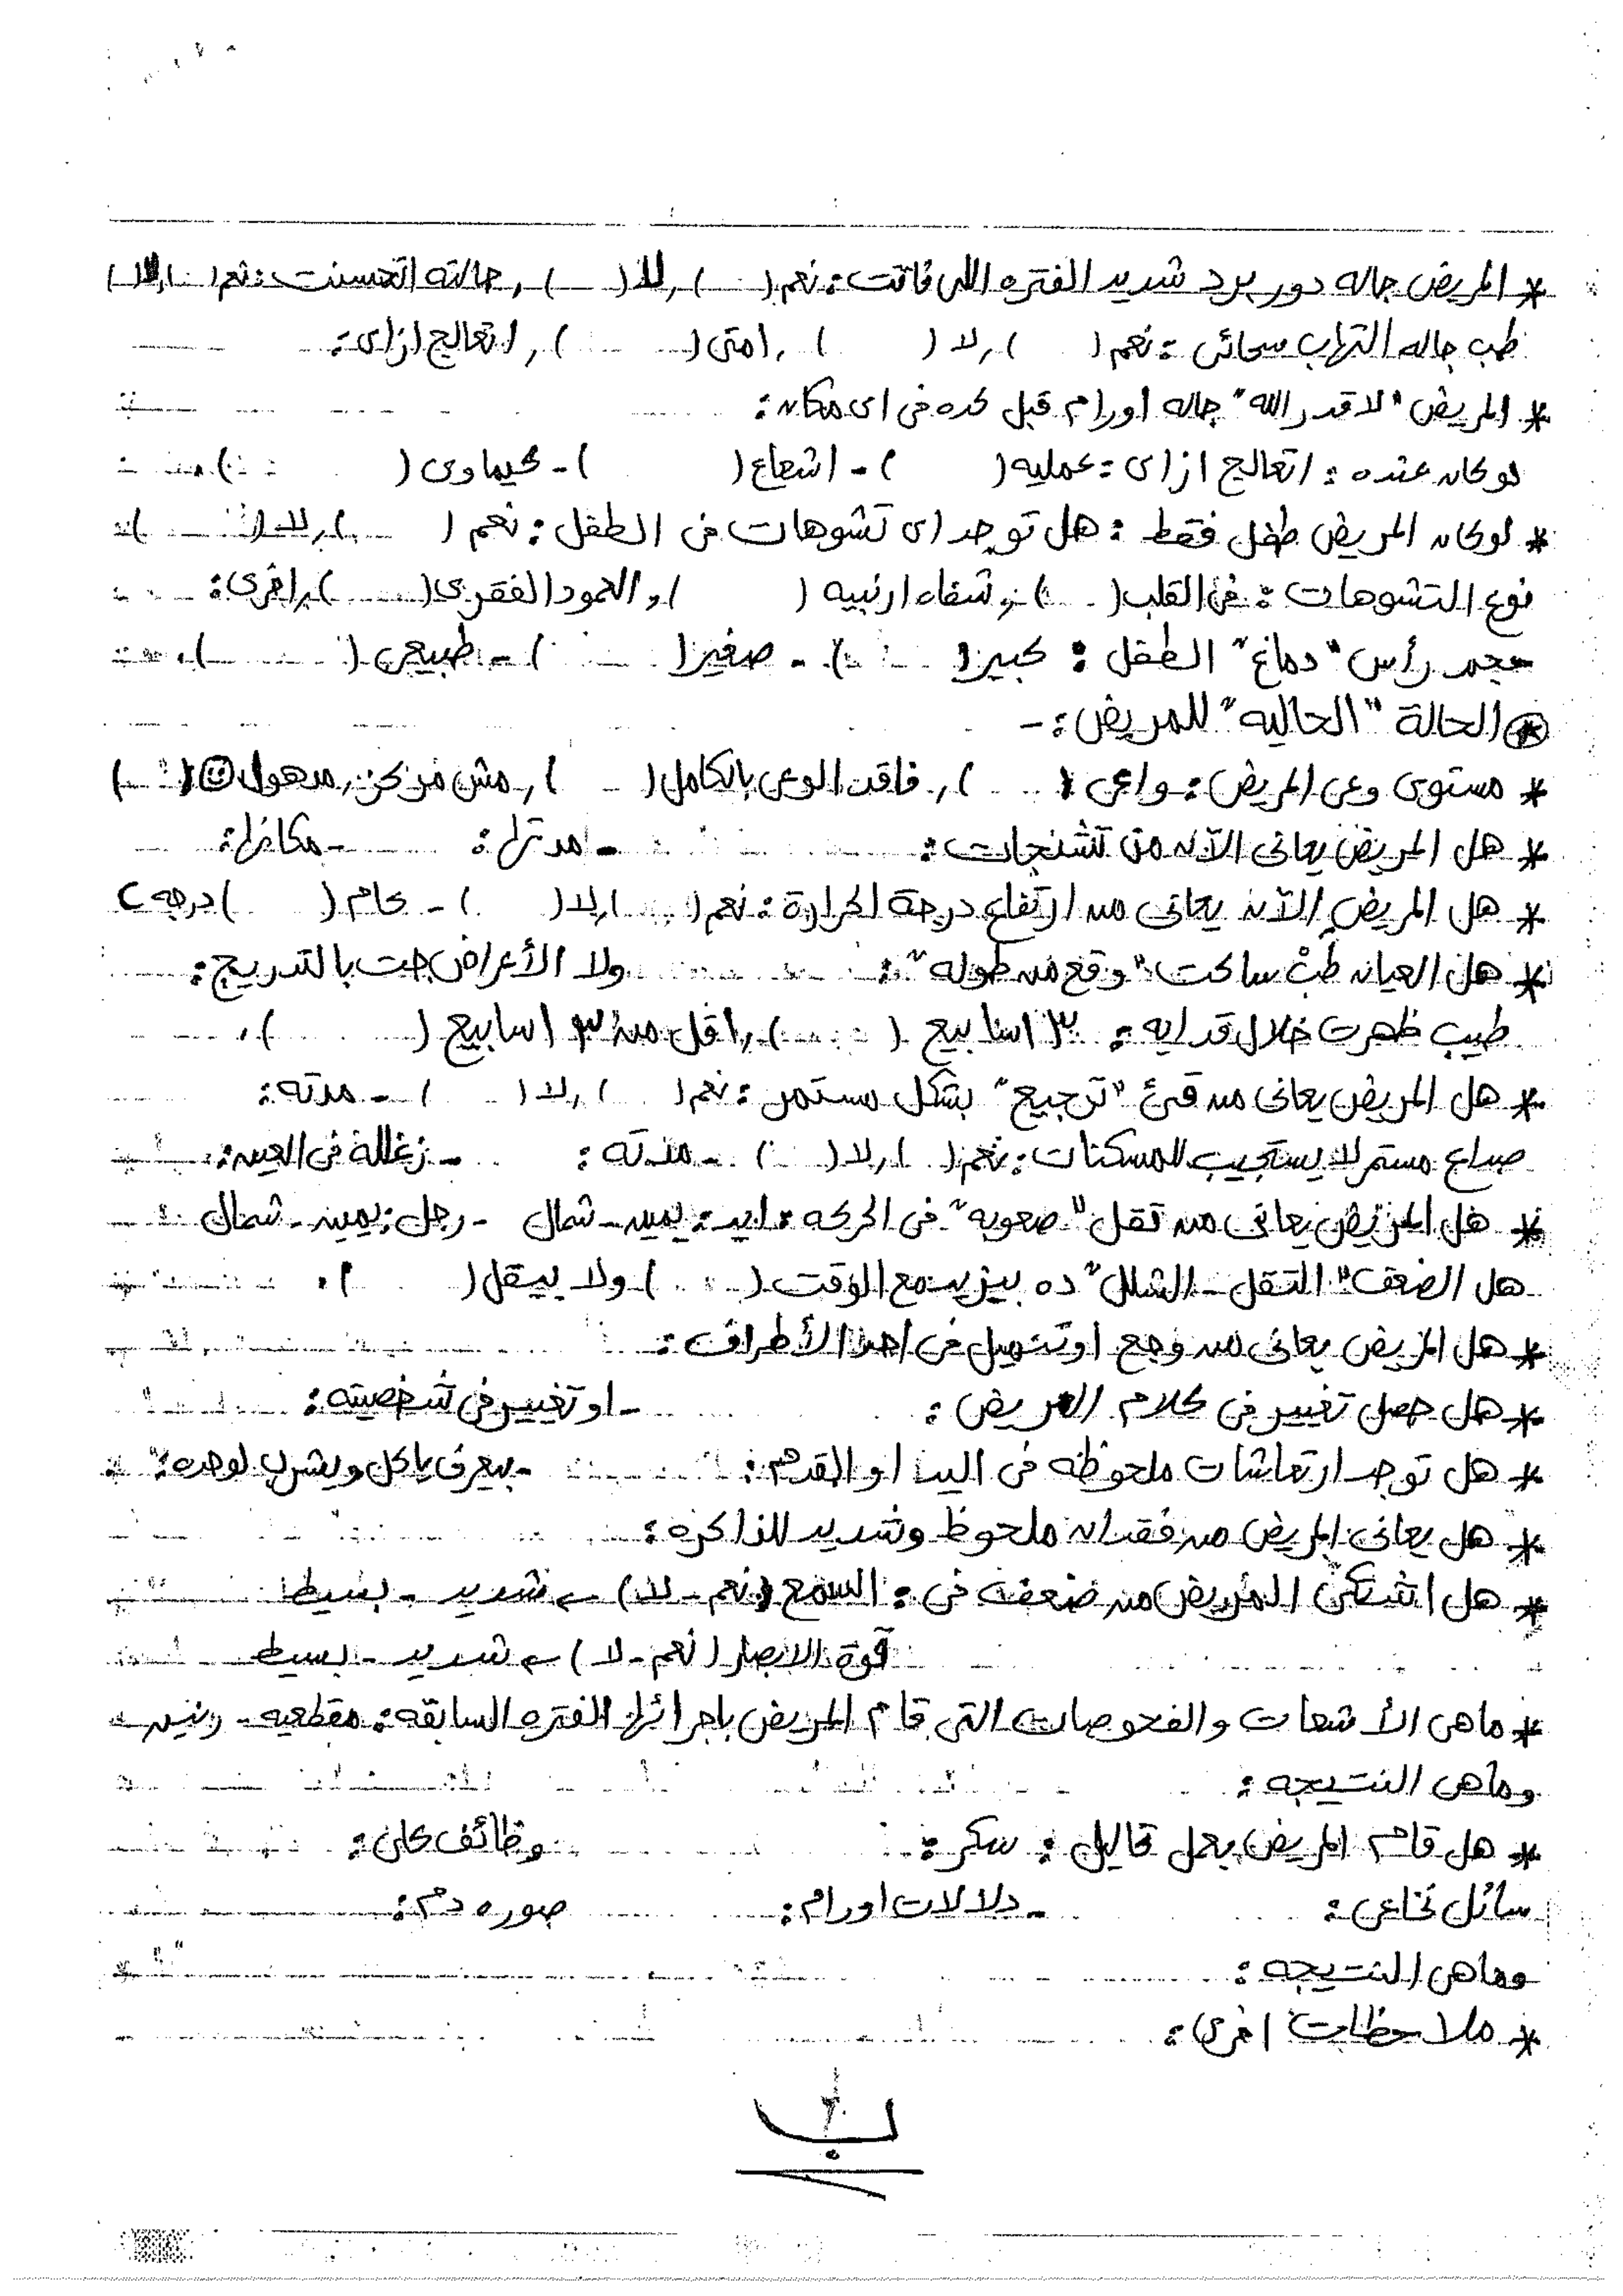 * المريض جاله دور برد شديد الفتره اللى فاتت: نعم ( ) , لا ( ) , حالته اتحسنت: نعم ( ) , لا ( )
طب جاله التهاب سحائى: نعم ( ) , لا ( ) , امتى ( ) , اتعالج ازاى:
* المريض "لا قدر الله" جاله اورام قبل كده فى اى مكان:
لو كان عنده: اتعالج ازاى: عمليه ( ) - اشعاع ( ) - كيماوى ( )
* لو كان المريض طفل فقط: هل توجد اى تشوهات فى الطفل: نعم ( ) , لا ( )
نوع التشوهات: فى القلب ( ) , شفاه ارنبيه ( ) , العمود الفقرى ( ) , اخرى:
حجم رأس "دماغ" الطفل: كبير ( ) - صغير ( ) - طبيعى ( ) .
* الحالة "الحاليه" للمريض: -
* مستوى وعى المريض: واعى ( ) , فاقد الوعى بالكامل ( ) , مش مركز , مدهول ☺ ( )
* هل المريض يعانى الآن من تشنجات: - مدتها: - مكانها:
* هل المريض الآن يعانى من ارتفاع درجة الحرارة: نعم ( ) , لا ( ) - كام ( ) درجه C
* هل العيان طبْ ساكت "وقع من طوله": ولا الأعراض جت بالتدريج:
طيب ظهرت خلال قد ايه: ٣ اسابيع ( ) , اقل من ٣ اسابيع ( ) .
* هل المريض يعانى من قئ "ترجيع" بشكل مستمر: نعم ( ) , لا ( ) - مدته:
صداع مستمر لا يستجيب للمسكنات: نعم ( ) , لا ( ) - مدته: - زغللة فى العين:
* هل المريض يعانى من تقل "صعوبه" فى الحركه: ايد: يمين - شمال - رجل: يمين - شمال
هل الضعف "التقل - الشلل" ده بيزيد مع الوقت ( ) ولا بيقل ( ) .
* هل المريض يعانى من وجع او تنميل فى احد الأطراف:
* هل حصل تغيير فى كلام المريض: - او تغيير فى شخصيته:
* هل توجد ارتعاشات ملحوظه فى اليد او القدم: - بيعرف ياكل ويشرب لوحده:
* هل يعانى المريض من فقدان ملحوظ وشديد للذاكره:
* هل اشتكى المريض من ضعف فى: السمع (نعم - لا) ← شديد - بسيط
قوة الابصار (نعم - لا) ← شديد - بسيط
* ماهى الأشعات والفحوصات التى قام المريض باجرائها الفتره السابقه: مقطعيه - رنين
وماهى النتيجه:
* هل قام المريض بعمل تحاليل: سكر: وظائف كلى:
سائل نخاعى: - دلالات اورام: صوره دم:
وماهى النتيجه:
* ملاحظات اخرى:
ب